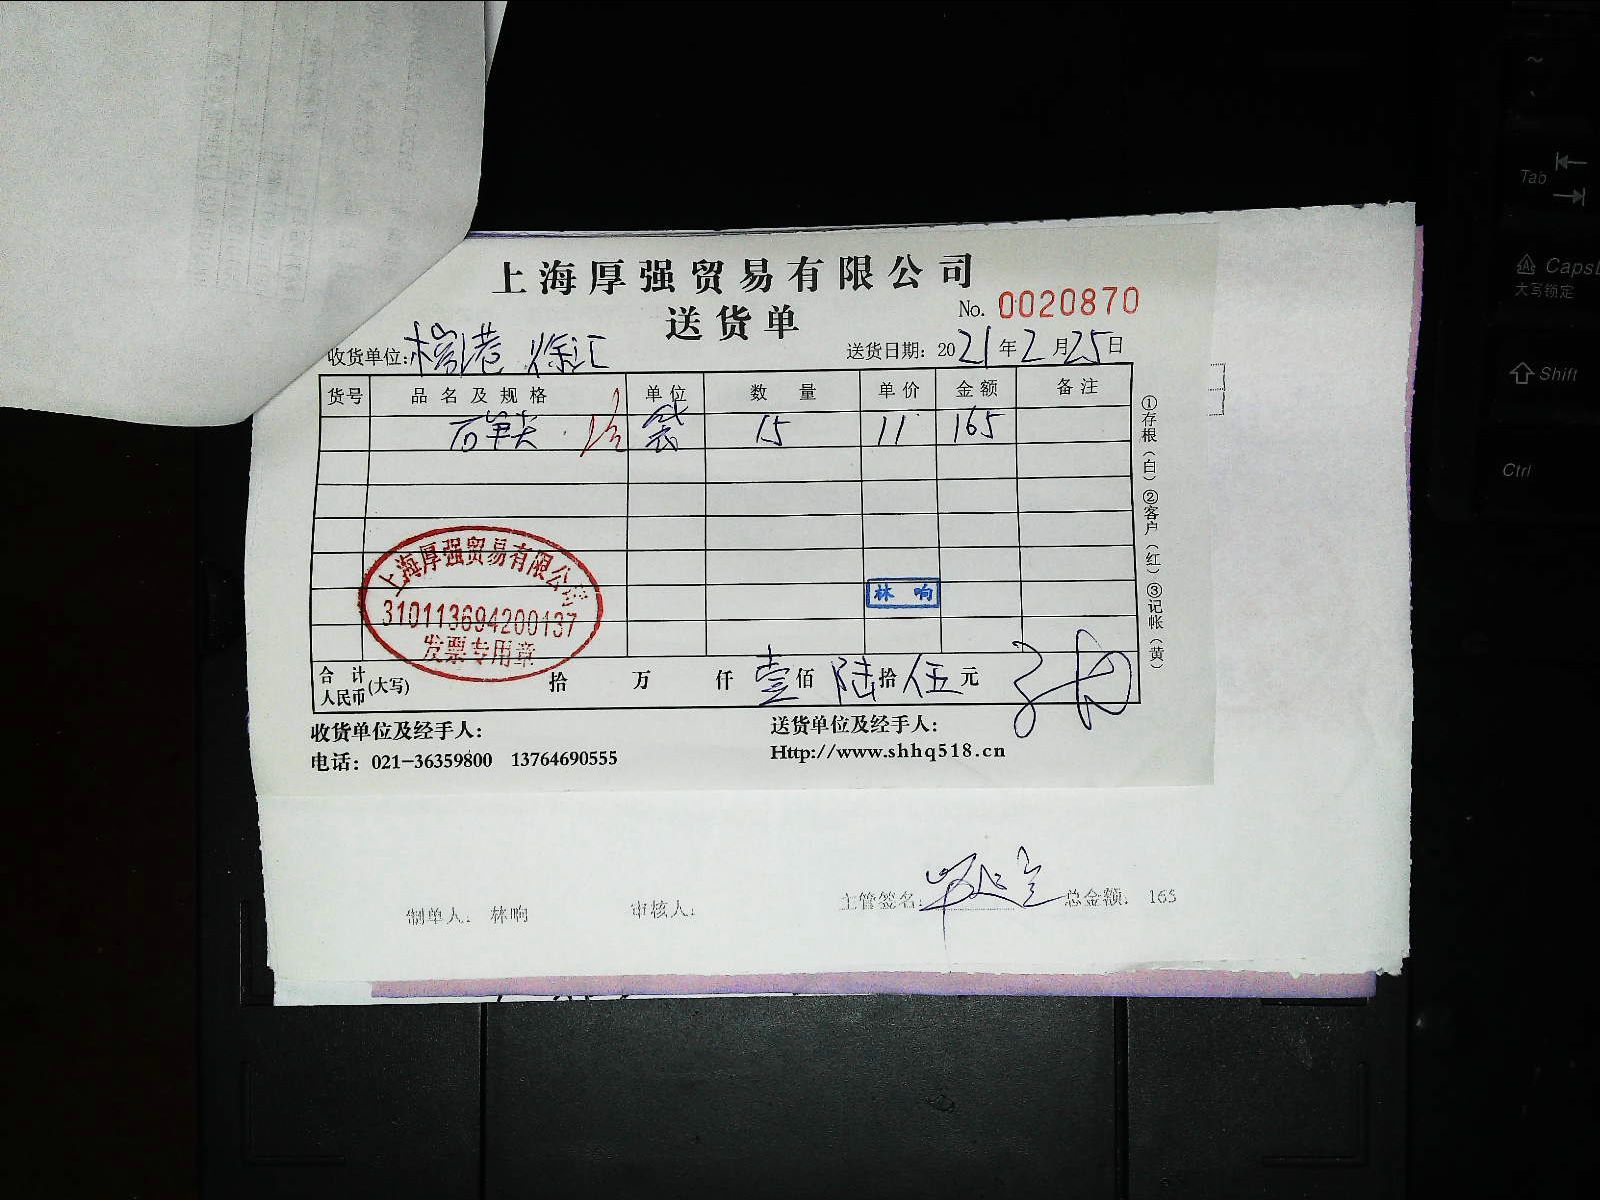 上海厚强贸易有限公司
送货单
No. 0020870
收货单位: 徐汇
送货日期: 2021年2月25日
货号 品名及规格 单位 数量 单价 金额 备注
石笋尖 袋 15 11 165
①存根(白)②客户(红)③记帐(黄)
上海厚强贸易有限公司
310113694200137
发票专用章
林响
合计人民币(大写) 拾 万 仟 壹佰 陆拾 伍元
收货单位及经手人:
送货单位及经手人:
电话: 021-36359800 13764690555
Http://www.shhq518.cn
制单人: 林响 审核人: 主管签名: 总金额: 165
~
Tab
CapsL
大写锁定
Shift
Ctrl